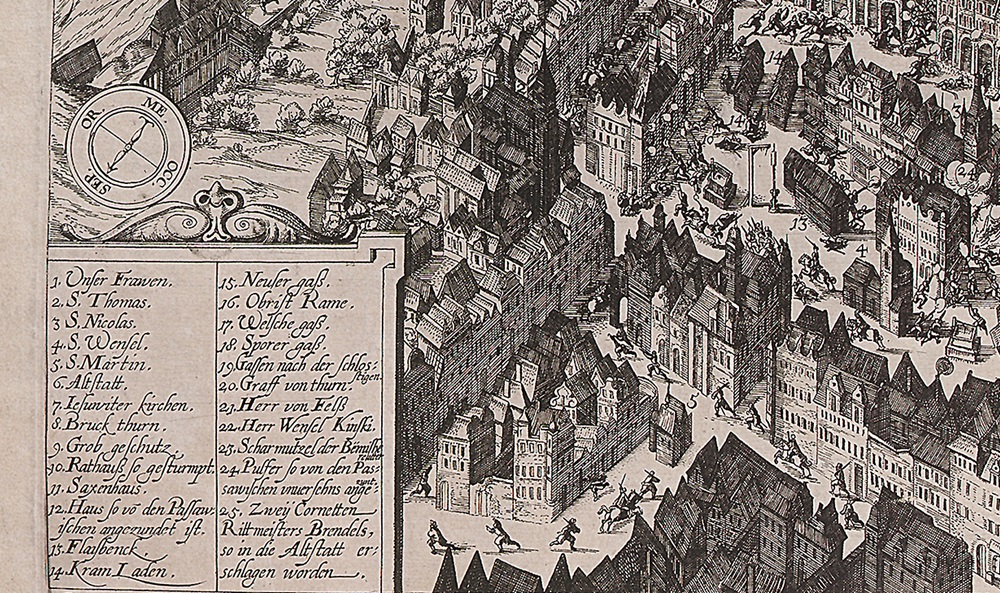 OR
ME
SEP
OCC
1. Unser Frawen.
2. S. Thomas.
3 S. Nicolas.
4. S. Wensel.
5. S. Martin.
6. Altstatt.
7. Iesuviter kirchen.
8. Bruck thurn.
9. Grob geschutz
10. Rathauß so gesturmpt.
11. Saxenhaus.
12. Haus so vō den Passaw-
ischen angezundet ist.
13. Flaisbenck.
14. Kram Laden.
15. Neuser gaß.
16. Obrist Rame.
17. Welsche gaß.
18. Sporer gaß.
19 Gassen nach der schlos-
stigen.
20. Graff von thurn.
21. Herr von Felß
22. Herr Wensel Kinski.
23. Scharmutzel der Bēmische
24. Pulfer so von den Pas-
sawischen inversehns ange-
zunt.
25. Zwey Cornetten
Rittmeisters Brendels,
so in die Altstatt er-
schlagen worden.
14
14
13
4
24
5